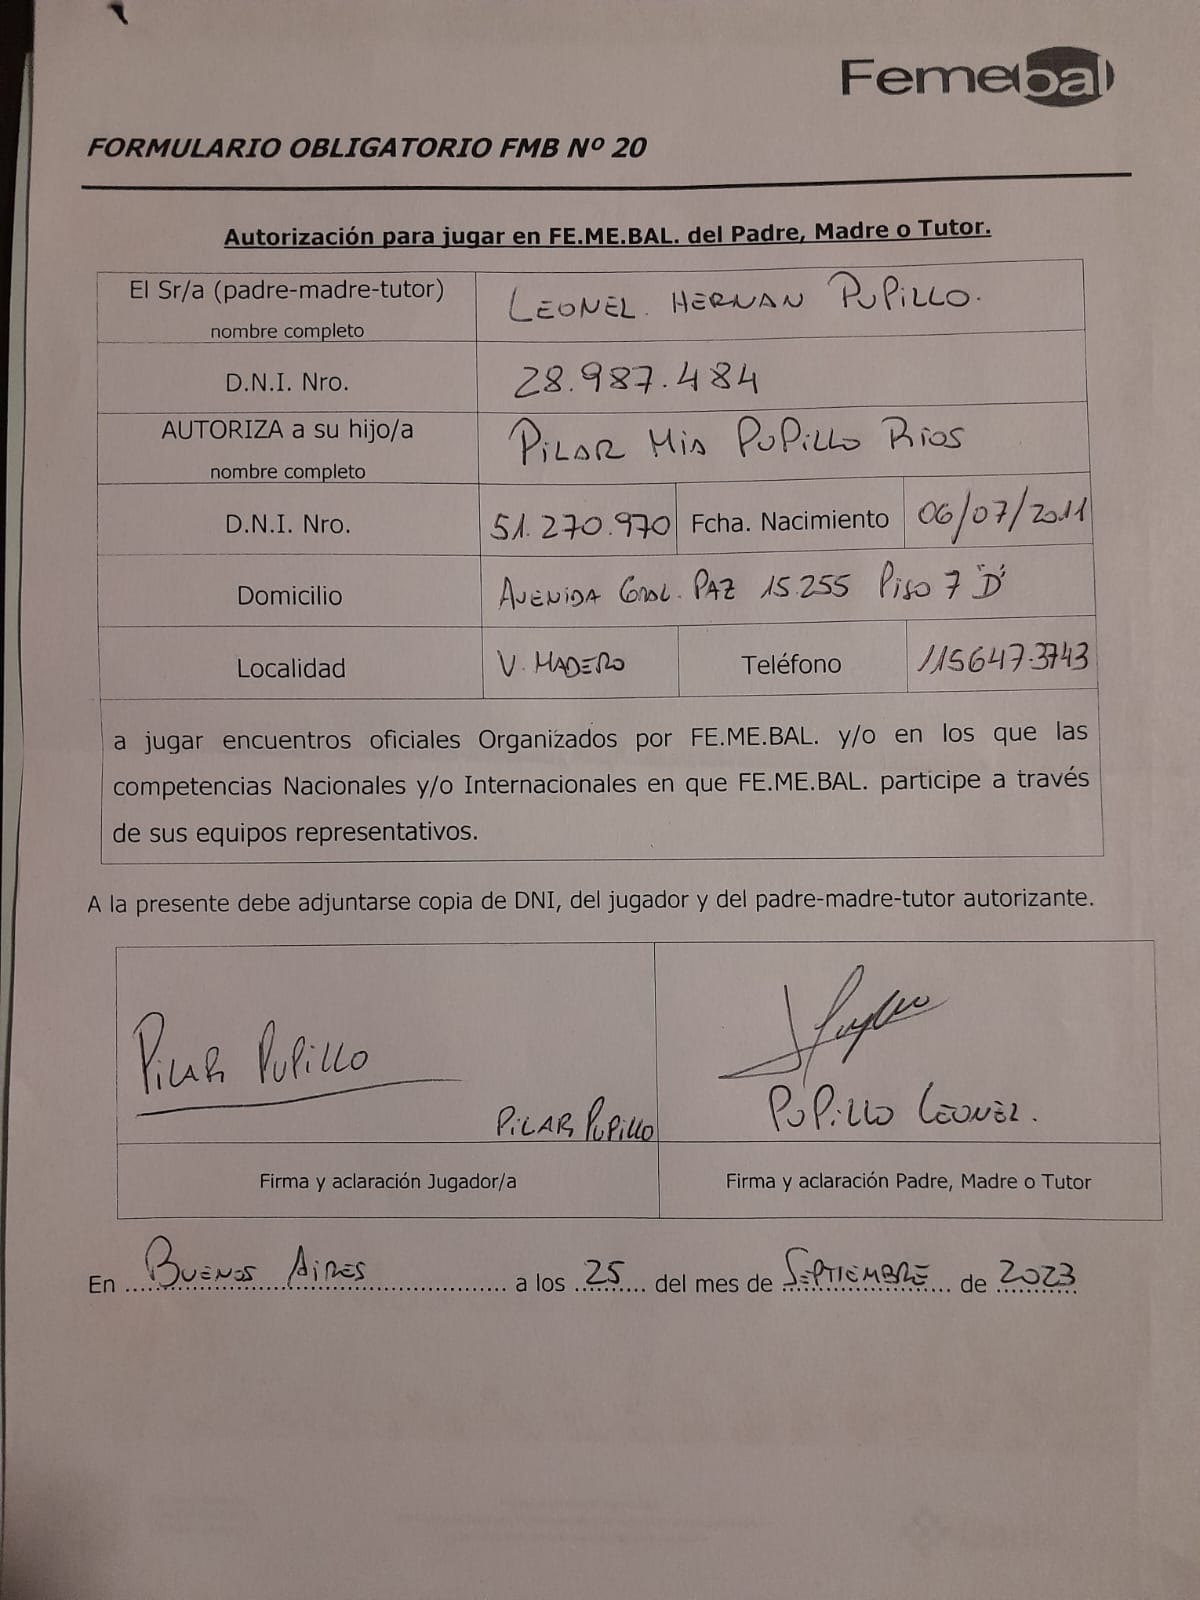 Femebal
FORMULARIO OBLIGATORIO FMB Nº 20
Autorización para jugar en FE.ME.BAL. del Padre, Madre o Tutor.
El Sr/a (padre-madre-tutor)
nombre completo
LEONEL. HERNAN PUPILLO.
D.N.I. Nro.
28.987.484
AUTORIZA a su hijo/a
nombre completo
PILAR MIA PUPILLO RIOS
D.N.I. Nro.
51.270.970
Fcha. Nacimiento
06/07/2011
Domicilio
AVENIDA GRAL. PAZ 15.255 PISO 7 "D"
Localidad
V. MADERO
Teléfono
115647.3743
a jugar encuentros oficiales Organizados por FE.ME.BAL. y/o en los que las
competencias Nacionales y/o Internacionales en que FE.ME.BAL. participe a través
de sus equipos representativos.
A la presente debe adjuntarse copia de DNI, del jugador y del padre-madre-tutor autorizante.
PILAR PUPILLO
PILAR PUPILLO
PUPILLO LEONEL.
Firma y aclaración Jugador/a
Firma y aclaración Padre, Madre o Tutor
En BUENOS AIRES a los 25 del mes de SEPTIEMBRE de 2023